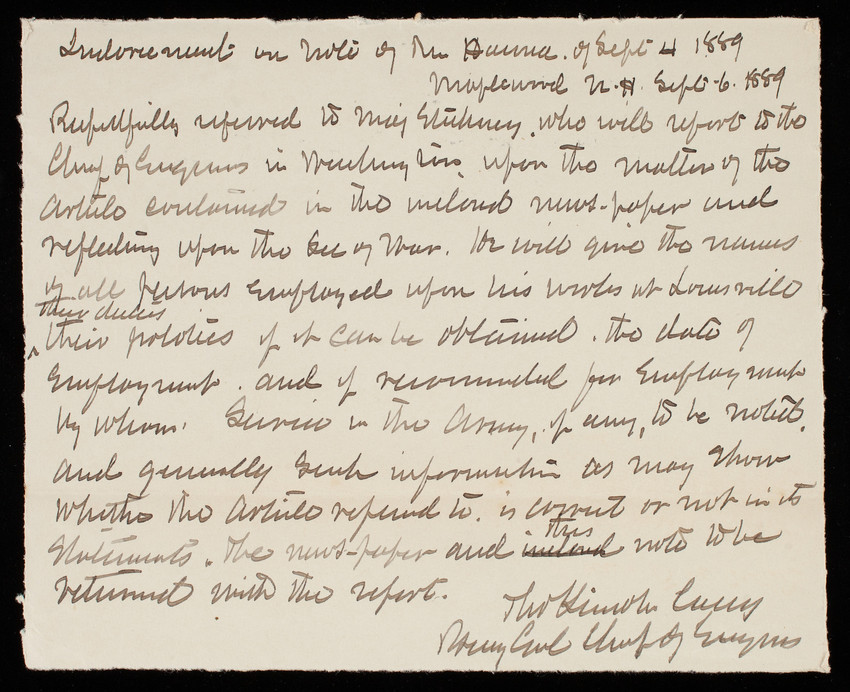 Indorsement on note of Mr Hanna. of Sept 4 1889
Maplewood N.H. Sept-6. 1889
Respectfully referred to Maj Stickney, who will report to the
Chief of Engineers in Washington, upon the matter of the
Article contained in the inclosed news-paper and
reflecting upon the Sec of War. He will give the names
of all persons employed upon his works at Louisville
their duties
their politics if it can be obtained. the date of
employment. and if recommended for employment
by whom. Service in the Army, if any, to be noted.
and generally such information as may show
whether the Article referred to. is correct or not in its
Statements. The news-paper and inclosed this note to be
returned with the report.
Thos Lincoln Casey
Brig Genl Chief of Engineers